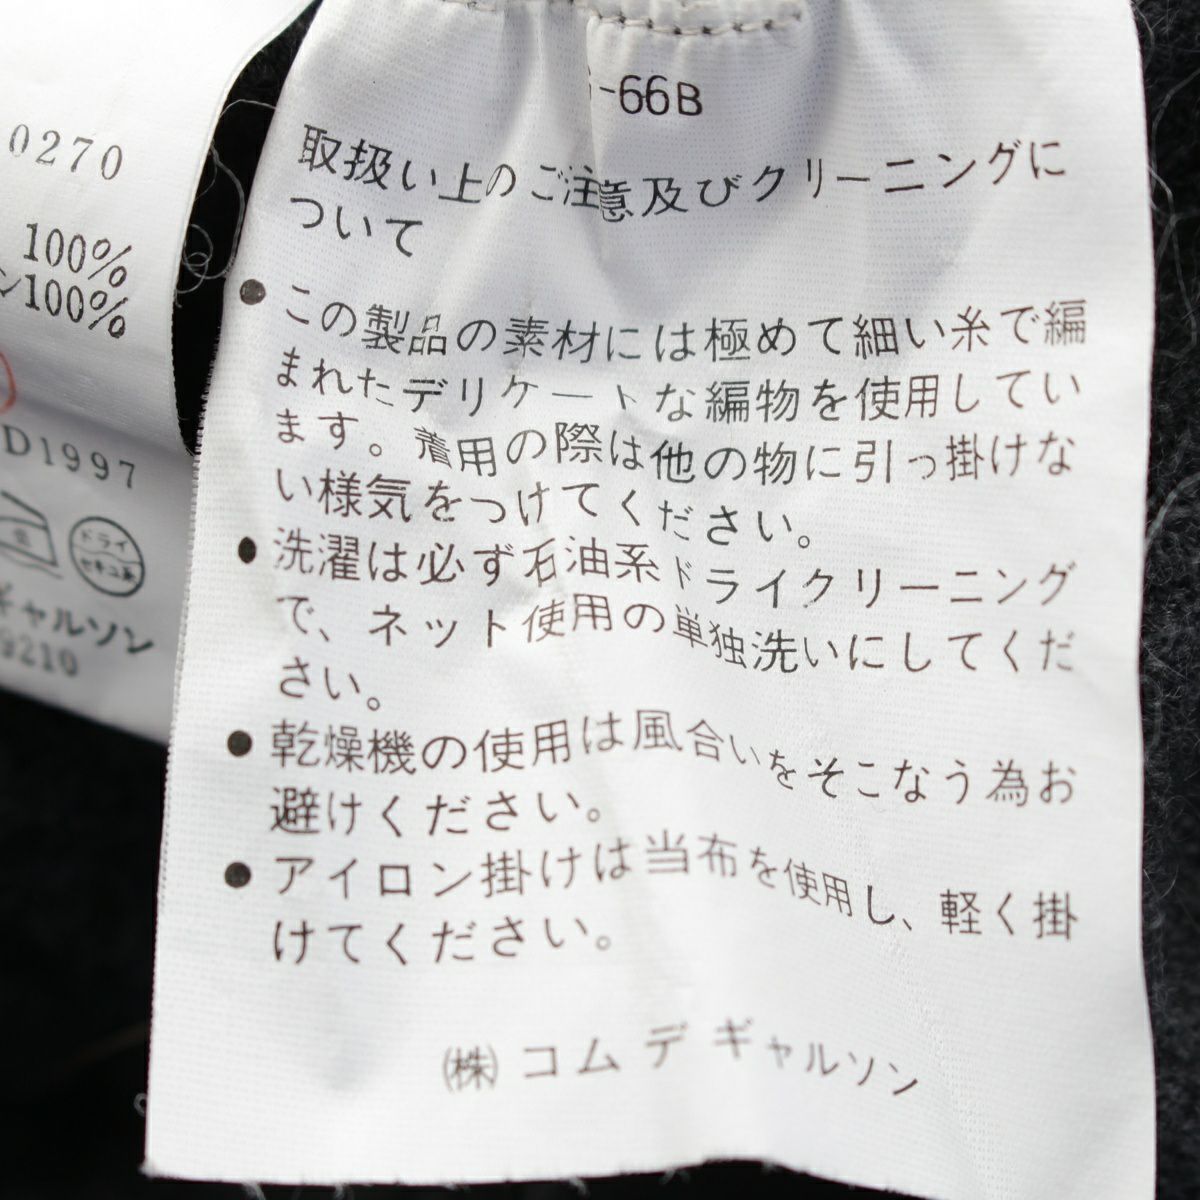 0270
100%
ン100%
D1997
ドライ
セキユ系
ギャルソン
9210
-66B
取扱い上のご注意及びクリーニングに
ついて
● この製品の素材には極めて細い糸で編
まれたデリケートな編物を使用してい
ます。着用の際は他の物に引っ掛けな
い様気をつけてください。
● 洗濯は必ず石油系ドライクリーニング
で、ネット使用の単独洗いにしてくだ
さい。
● 乾燥機の使用は風合いをそこなう為お
避けください。
● アイロン掛けは当布を使用し、軽く掛
けてください。
㈱ コム デ ギャルソン